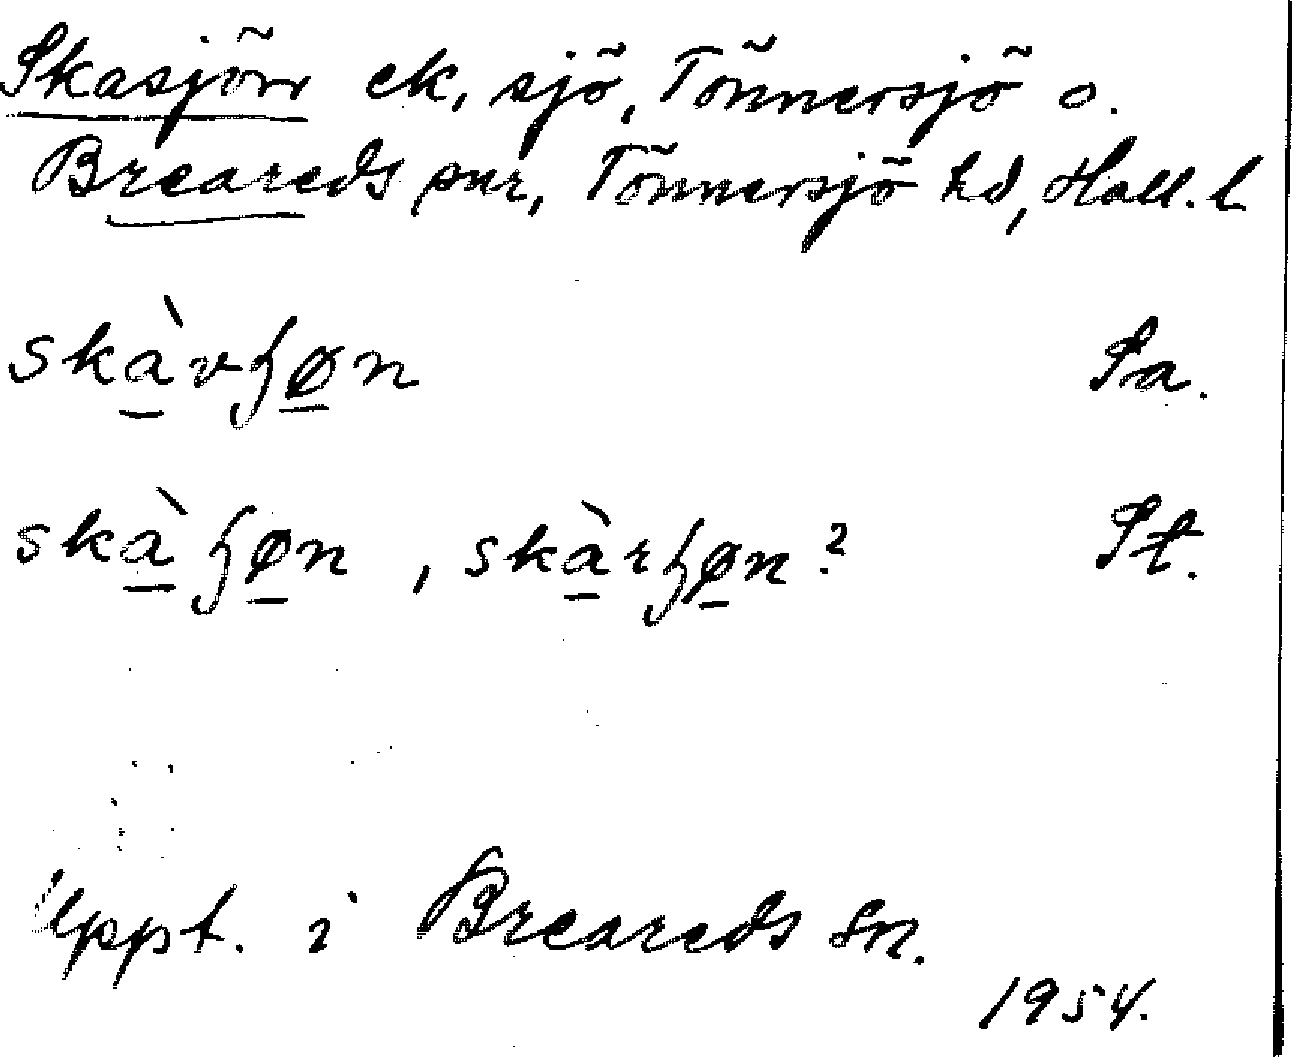 Skasjön ek, sjö, Tönnersjö o.
Breareds snr, Tönnersjö hd, Hall. l.
skàvɧøn Sa.
skàɧøn, skàrɧøn? St.
Uppt. i Breareds sn.
1954.